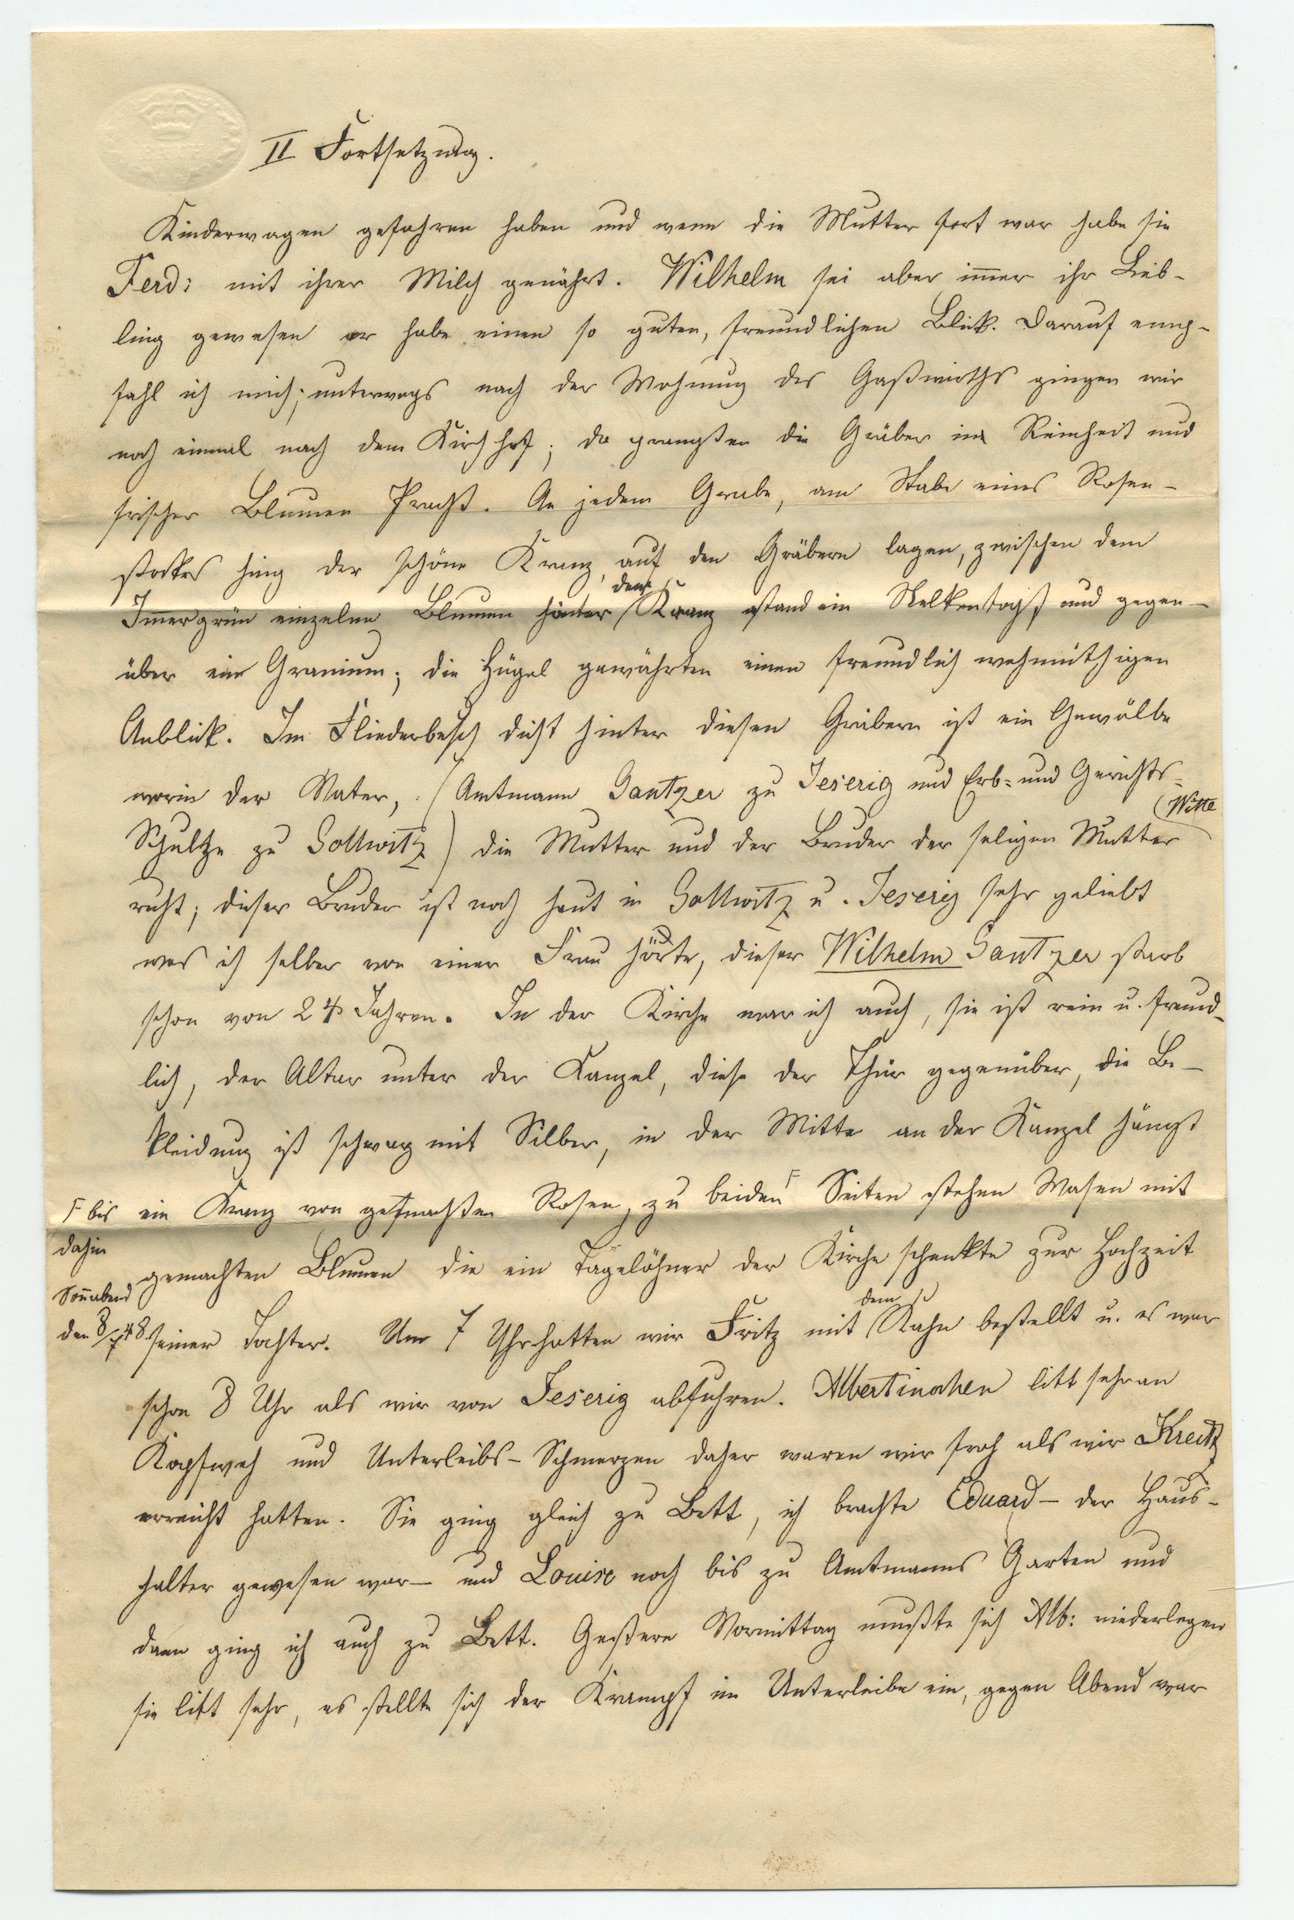 II Fortsetzung.
Kinderwagen gefahren haben und wenn die Mutter fort war habe sie
Ferd: mit ihrer Milch genährt. Wilhelm sei aber im̅er ihr Lieb-
ling gewesen er habe einen so guten, freundlichen Blick. Darauf emp-
fahl ich mich; unterwegs nach der Wohnung des Gaßwirths gingen wir
noch einmal nach dem Kirchhof; da prangten die Gräber in Reinheit und
frischer Blumen Pracht. An jedem Grabe, am Stabe eines Rosen-
stockes hing der schöne Kranz, auf den Gräbern lagen, zwischen dem
Im̅ergrün einzelne Blumen hinter dem Kranz stand ein Nelkentopf und gegen-
über ein Granium; die Hügel gewährten einen freundlich wehmüthigen
Anblick. Im Fliederbusch dicht hinter diesen Gräbern ist ein Gewölbe
worin der Vater, (Amtmann Gantzer zu Jeserig und Erb- und Gerichts-
Schultze zu Gollwitz) die Mutter und der Bruder der seligen Mutter (Witte
ruht; dieser Bruder ist noch heut in Gollwitz u. Jeserig sehr geliebt
was ich selber von einer Frau hörte, dieser Wilhelm Gantzer starb
schon von 24 Jahren. In der Kirche war ich auch, sie ist rein u. freund-
lich, der Altar unter der Kanzel, diese der Thür gegenüber, die Be-
kleidung ist schwarz mit Silber, in der Mitte an der Kanzel hängt
ein Kranz von gemachten Rosen, zu beiden F Seiten stehen Vasen mit
gemachten Blumen die ein Tagelöhner der Kirche schenkte zur Hochzeit
seiner Tochter. Um 7 Uhr hatten wir Fritz mit dem Kahn bestellt u. es war
F bis
dahin
Son̅abend
den 8/7 48.
schon 8 Uhr als wir von Jeserig abfuhren. Albertinchen litt sehr an
Kopfweh und Unterleibs-Schmerzen daher waren wir froh als wir Kreitz
erreicht hatten. Sie ging gleich zu Bett, ich brachte Eduard - der Haus-
halter gewesen war - und Louise noch bis zu Amtmanns Garten und
dann ging ich auch zu Bett. Gestern Vormittag mußte sich Alb: niederlegen
sie litt sehr, es stellte sich der Krampf im Unterleibe ein, gegen Abend war